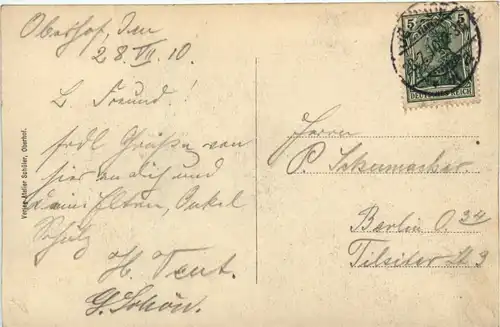 Oberhof, den
28. VII. 10.
L. Freund!
sedl Grüße von
hier an dich und
deine Eltern, Onkel
Schulz
H. Tent.
G. Schön.
Verlag Atelier Schlier, Oberhof.
5 5
DEUTSCHES REICH
Herrn
P. Schumacher
Berlin O. 34
Tilsiter St 9